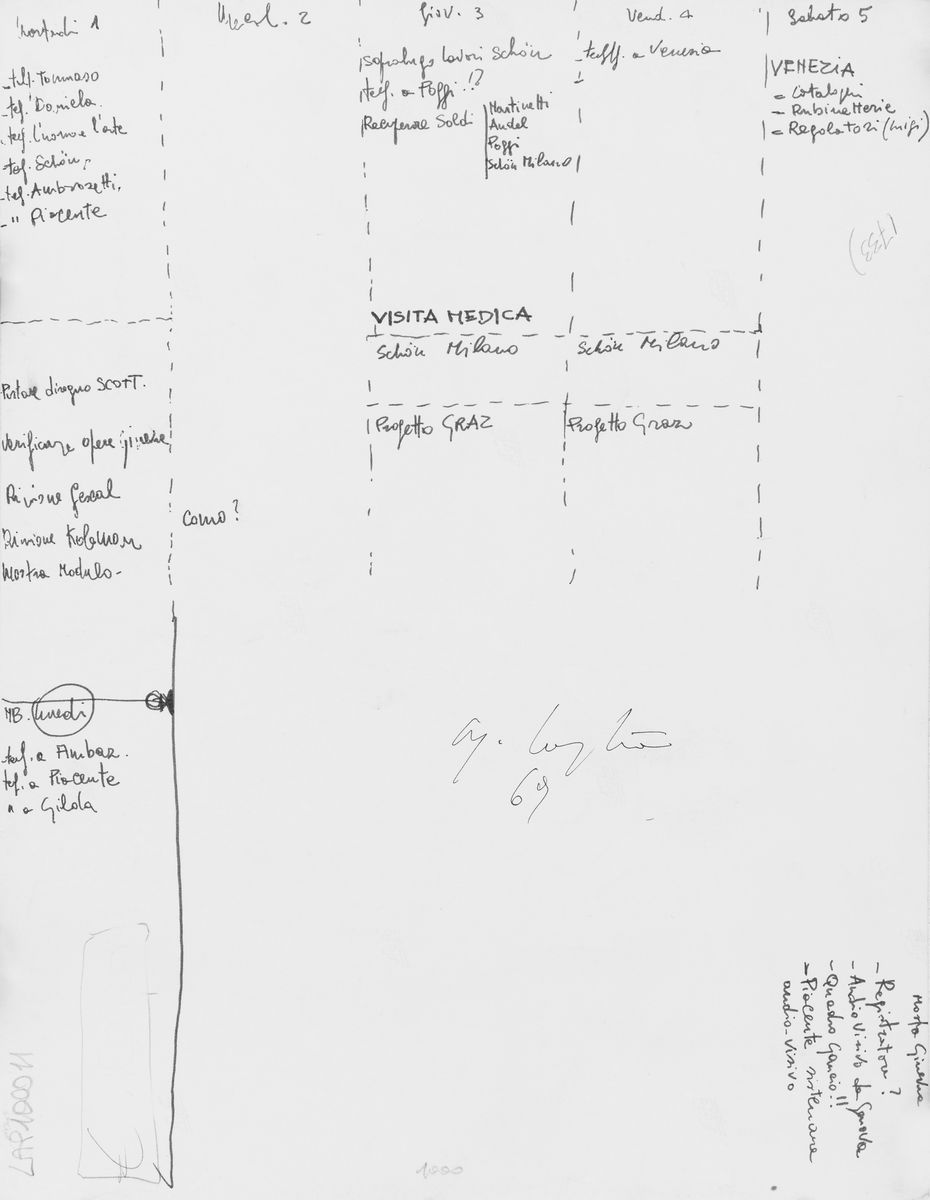 Martedì 1
-telf. Tommaso
-tef. Daniela.
-tef. L'uomo e l'arte
-tef. Schön,
-tef. Ambrozetti,
-" Piacente
Portare disegno SCOTT.
Verificare opere
Divisione Gescal
Divisione Koloman
Mostra Modulo-
MB.
telf. a Ambaz.
tef. a Piacente
" a Gilda
Merl. 2
Como?
Giov. 3
Sopraluogo lavori Schön
telf. a Poggi !?
Recuperare Soldi
Martinetti
Andel
Poggi
Schön Milano
VISITA MEDICA
Schön Milano
Progetto GRAZ
Vend. 4
- telff. a Venezia
Schön Milano
Progetto Graz
Sabato 5
VENEZIA
- Cataloghi
- Rubinetterie
- Regolatori (Luigi)
(733)
69
Mostra Ginevra
- Registratori?
- Audio Visivo da Genova
- Quadro Gancio!!
- Piacente sistemare
audio-visivo
LAP100011
1000